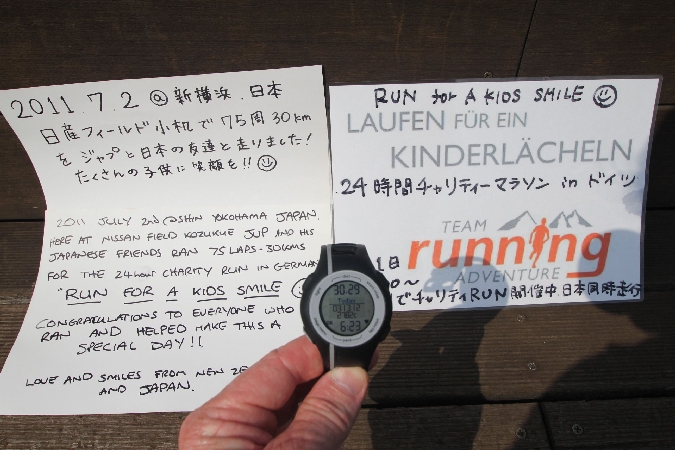 2011.7.2 @ 新横浜.日本
日産フィールド小机で 75周 30km
を ジャプと日本の友達と走りました!
たくさんの子供に笑顔を!!
2011 JULY 2nd @SHIN YOKOHAMA JAPAN.
HERE AT NISSAN FIELD KOZUKUE JUP AND HIS
JAPANESE FRIENDS RAN 75 LAPS - 30KMS
FOR THE 24 hour CHARITY RUN IN GERMAN
"RUN FOR A KIDS SMILE
CONGRADULATIONS TO EVERYONE WHO
RAN AND HELPED MAKE THIS A
SPECIAL DAY!!
LOVE AND SMILES FROM NEW ZE
AND JAPAN.
RUN for A KIDS SMILE
LAUFEN FÜR EIN
KINDERLÄCHELN
24時間チャリティーマラソン in ドイツ
TEAM
running
ADVENTURE
1日
0~
でチャリティRUN 開催中.日本同時走行
30.29
6:23